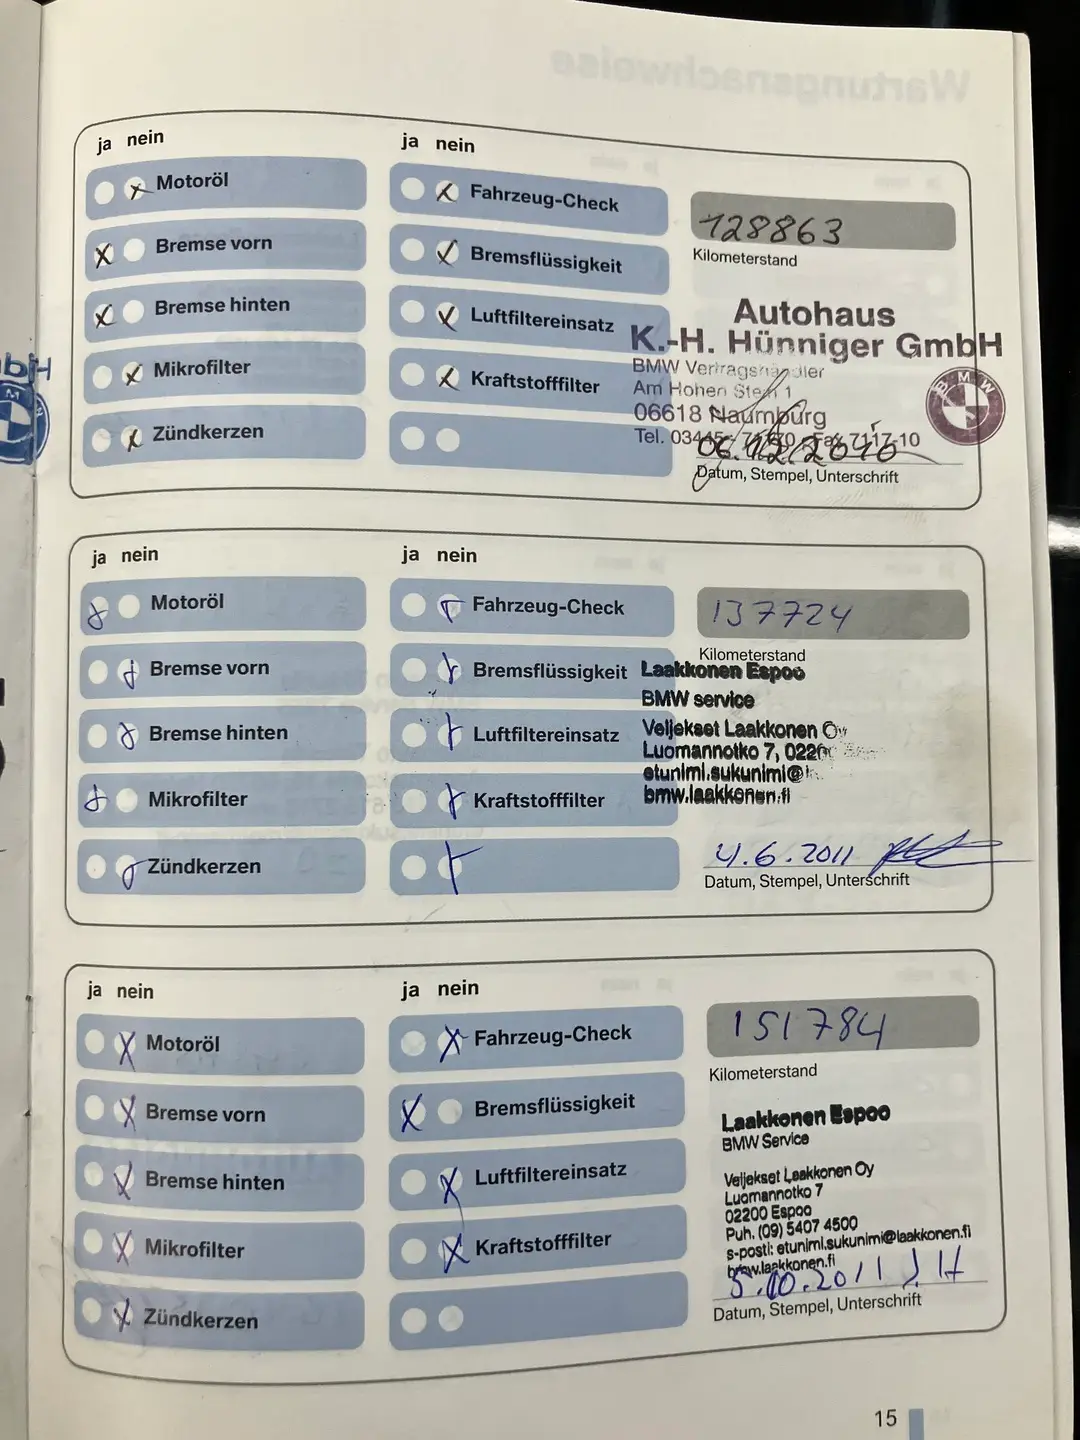 ja nein
Motoröl
Bremse vorn
Bremse hinten
Mikrofilter
Zündkerzen
ja nein
Fahrzeug-Check
Bremsflüssigkeit
Luftfiltereinsatz
Kraftstofffilter
128863
Kilometerstand
Autohaus
K.-H. Hünniger GmbH
BMW Vertragshändler
Am Hohen Stein 1
06618 Naumburg
Tel. Fax 7117-10
BMW
06.12.2010
Datum, Stempel, Unterschrift
ja nein
Motoröl
Bremse vorn
Bremse hinten
Mikrofilter
Zündkerzen
ja nein
Fahrzeug-Check
Bremsflüssigkeit
Luftfiltereinsatz
Kraftstofffilter
137724
Kilometerstand
Laakkonen Espoo
BMW service
Veljekset Laakkonen Oy
Luomannotko 7,
etunimi.sukunimi@
bmw.laakkonen.fi
4.6.2011
Datum, Stempel, Unterschrift
ja nein
Motoröl
Bremse vorn
Bremse hinten
Mikrofilter
Zündkerzen
ja nein
Fahrzeug-Check
Bremsflüssigkeit
Luftfiltereinsatz
Kraftstofffilter
151784
Kilometerstand
Laakkonen Espoo
BMW Service
Veljekset Laakkonen Oy
Luomannotko 7
02200 Espoo
Puh. (09) 5407 4500
s-posti: etunimi.sukunimi@laakkonen.fi
bmw.laakkonen.fi
5.10.2011
Datum, Stempel, Unterschrift
15